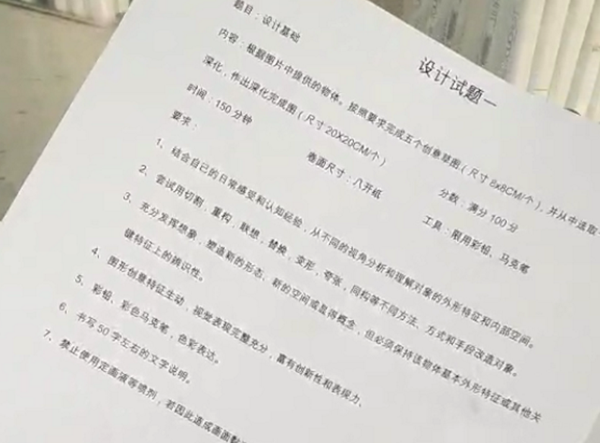 设计试题一
题目：设计基础
内容：根据图片中提供的物体。按照要求完成五个创意草图（尺寸8x8CM/个），并从中选取
深化，作出深化完成图（尺寸20X20CM/个）
时间：150分钟 卷面尺寸：八开纸 分数：满分100分
要求： 工具：限用彩铅、马克笔
1、结合自己的日常感受和认知经验，从不同的视角分析和理解对象的外形特征和内部空间。
2、尝试用切割，重构，联想，替换，变形，夸张，同构等不同方法、方式和手段改造对象。
3、充分发挥想象，塑造新的形态、新的空间或显得概念，但必须保持该物体基本外形特征或其他关
键特征上的辨识性。
4、图形创意特征生动，视觉表现完整充分，富有创新性和表现力。
5、彩铅，彩色马克笔，色彩表达。
6、书写50字左右的文字说明。
7、禁止使用定画液等喷剂，若因此造成画面